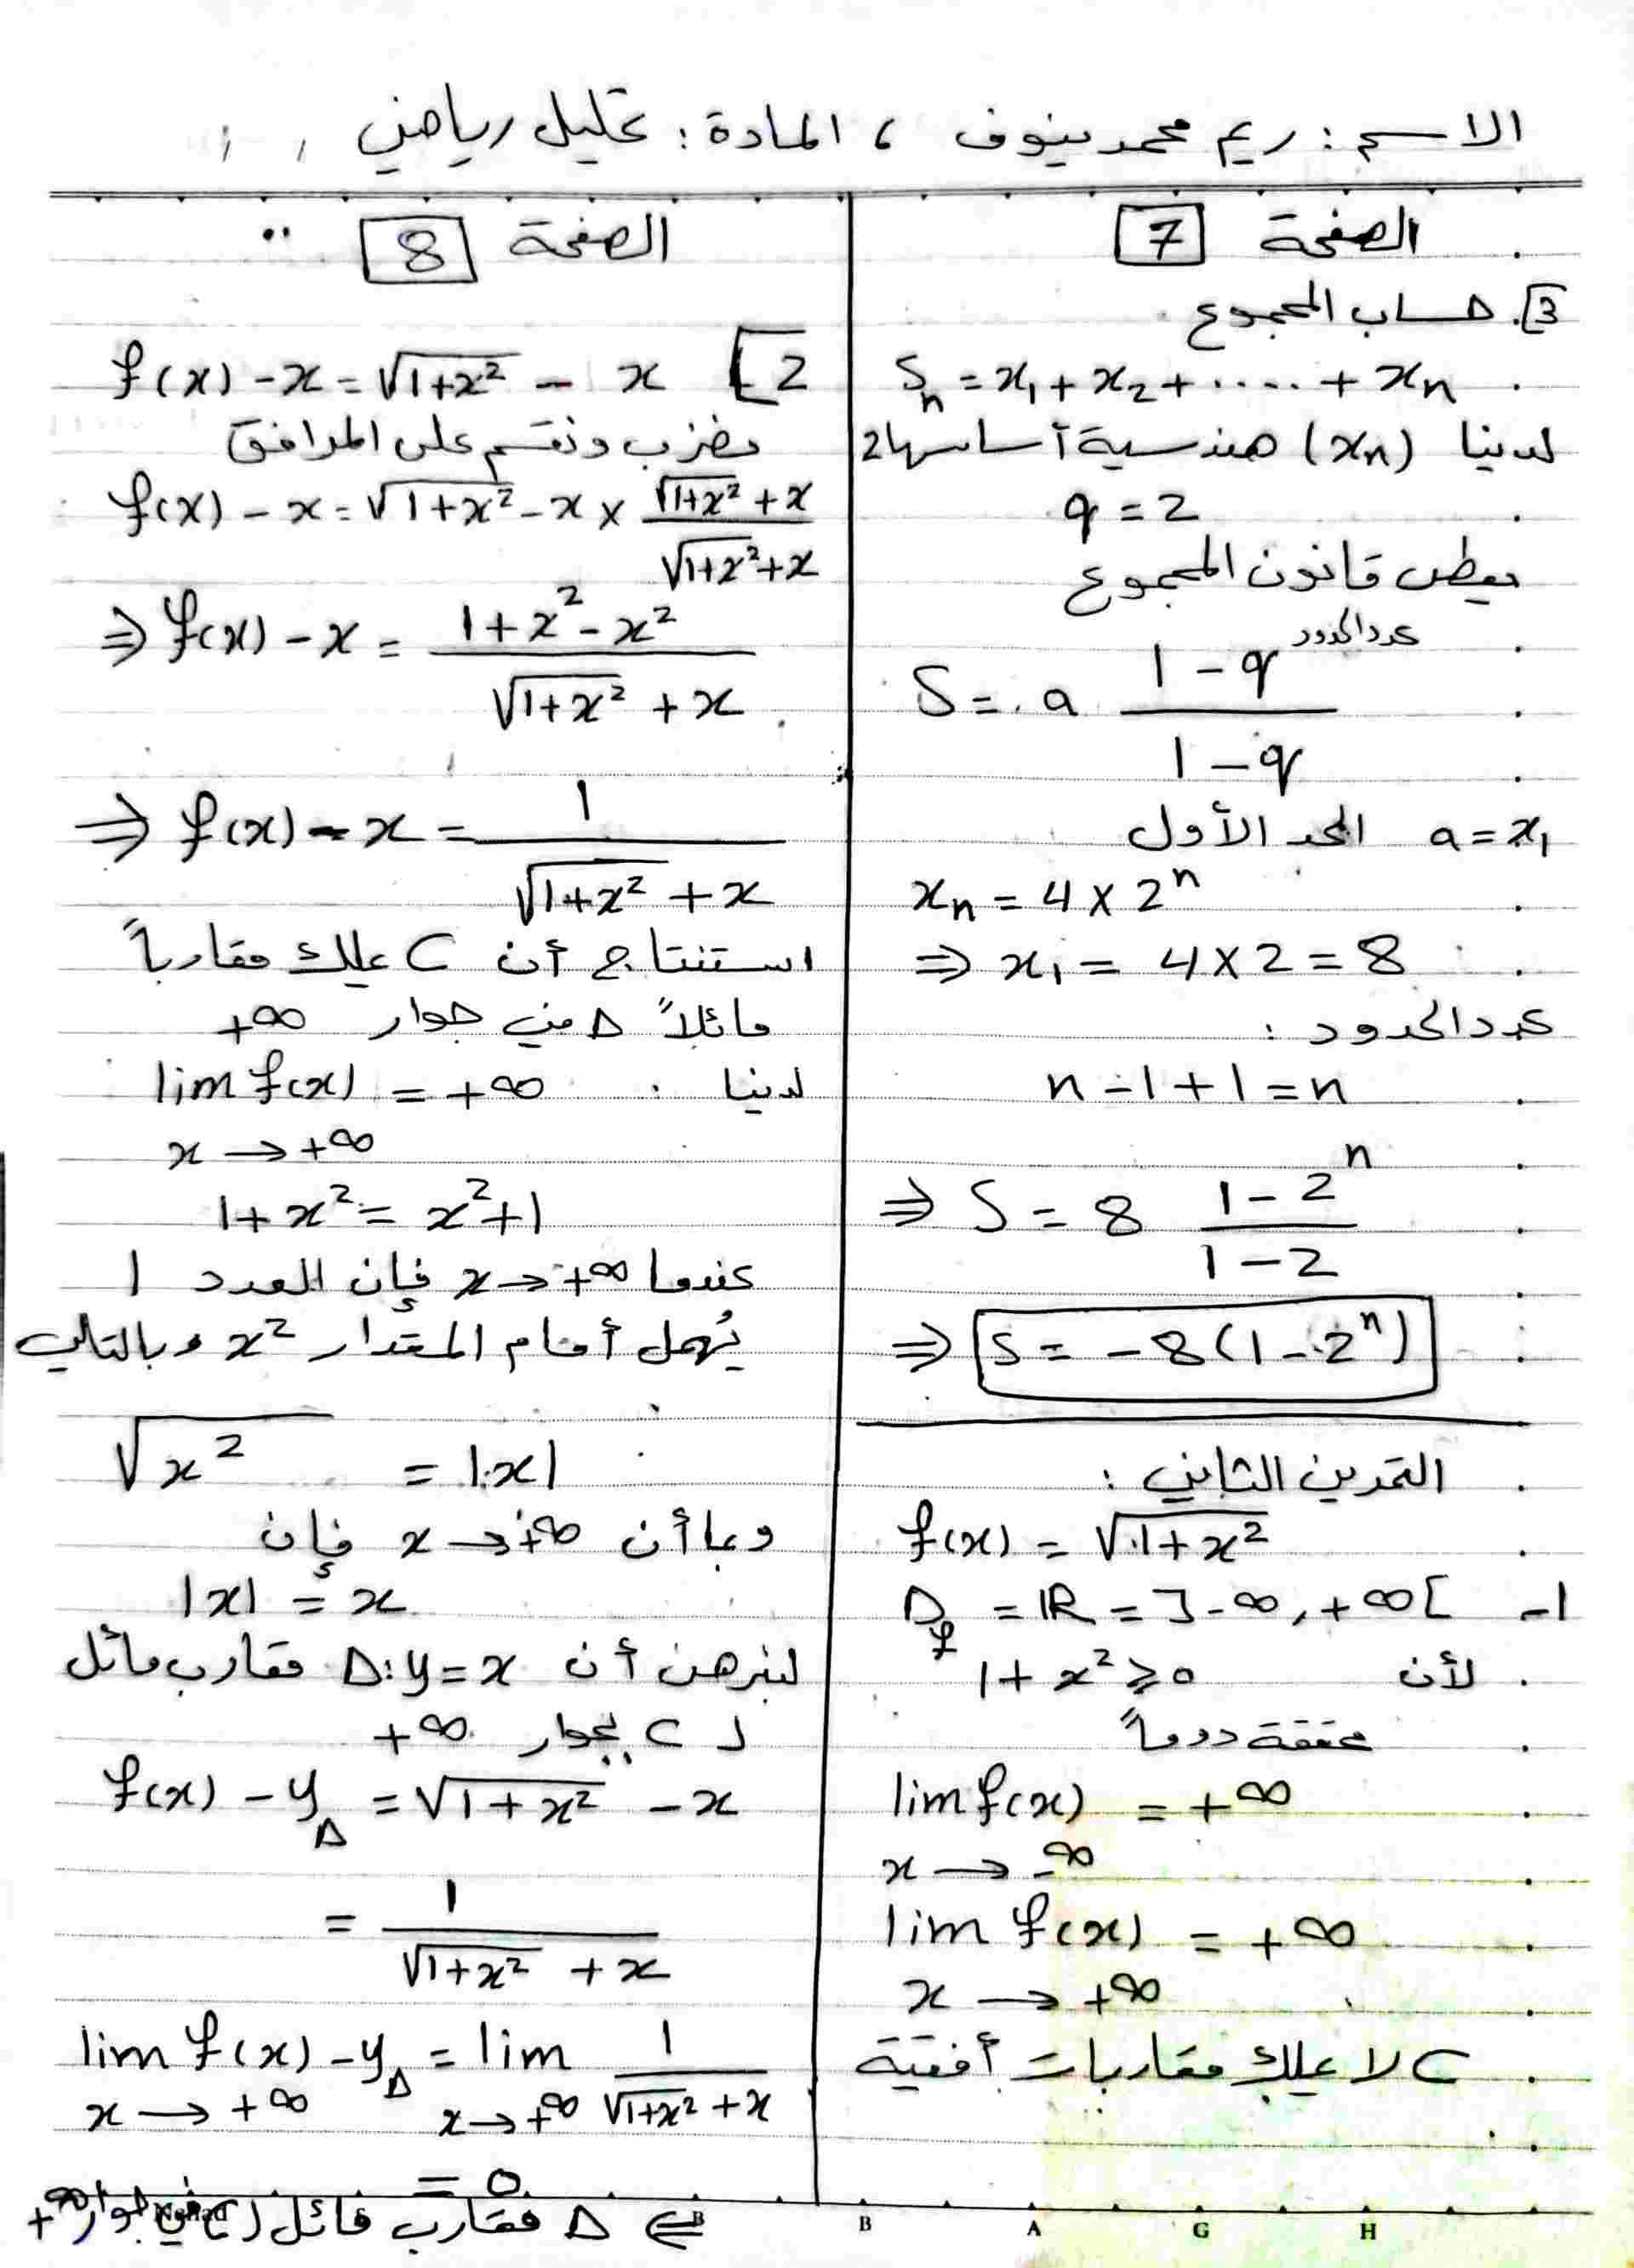 الاسم : ريم محمد بينوف ، المادة : تحليل رياضي
الصفحة 7
3. حساب المجموع
Sn = x1 + x2 + ..... + xn
لدينا (xn) هندسية أساسها 2
q = 2
يعطى قانون المجموع
S = a (1 - q^عدد الحدود) / (1 - q)
a = x1 الحد الأول
xn = 4 × 2^n
⇒ x1 = 4 × 2 = 8
عدد الحدود :
n - 1 + 1 = n
⇒ S = 8 (1 - 2^n) / (1 - 2)
⇒ S = -8(1 - 2^n)
التمرين الثاني :
f(x) = √(1+x²)
1- Df = IR = ]-∞, +∞[
لأن 1 + x² ≥ 0
محققة دوماً
lim f(x) = +∞
x → -∞
lim f(x) = +∞
x → +∞
C لا يملك مقاربات أفقية
الصفحة 8
2] f(x) - x = √(1+x²) - x
نضرب ونقسم على المرافق
f(x) - x = √(1+x²) - x × (√(1+x²) + x) / (√(1+x²) + x)
⇒ f(x) - x = (1 + x² - x²) / (√(1+x²) + x)
⇒ f(x) - x = 1 / (√(1+x²) + x)
استنتاج أن C يملك مقارباً
مائلاً Δ في جوار +∞
لدينا : lim f(x) = +∞
x → +∞
1 + x² = x² + 1
عندما x → +∞ فإن العدد 1
يُهمل أمام المقدار x² وبالتالي
√x² = |x|
وبما أن x → +∞ فإن
|x| = x
لنبرهن أن Δ: y = x مقارب مائل
لـ C بجوار +∞
f(x) - yΔ = √(1+x²) - x
= 1 / (√(1+x²) + x)
lim f(x) - yΔ = lim 1 / (√(1+x²) + x)
x → +∞ x → +∞
= 0
⇐ Δ مقارب مائل لـ C في جوار +∞
B A G H